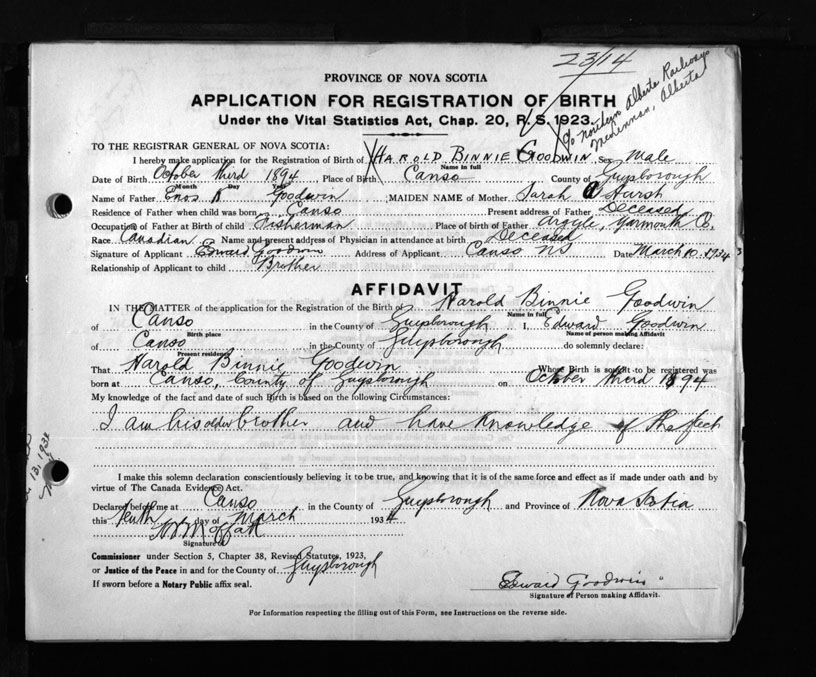 23/14
c/o Northern Alberta Railways
McLennan, Alberta
PROVINCE OF NOVA SCOTIA
APPLICATION FOR REGISTRATION OF BIRTH
Under the Vital Statistics Act, Chap. 20, R. S. 1923.
TO THE REGISTRAR GENERAL OF NOVA SCOTIA:
I hereby make application for the Registration of Birth of HAROLD BINNIE GOODWIN Sex Male
Name in full
Date of Birth October third 1894 Place of Birth Canso County of Guysborough
Month Day Year
Name of Father Enos R Goodwin MAIDEN NAME of Mother Sarah A Hurst
Residence of Father when child was born Canso Present address of Father Deceased
Occupation of Father at Birth of child Fisherman Place of birth of Father Argyle, Yarmouth Co.
Race Canadian Name and present address of Physician in attendance at birth Deceased
Signature of Applicant Edward Goodwin Address of Applicant Canso NS Date March 10. 1934
Relationship of Applicant to child Brother
AFFIDAVIT
IN THE MATTER of the application for the Registration of the Birth of Harold Binnie Goodwin
Name in full
of Canso in the County of Guysborough I, Edward Goodwin
Birth place Name of person making Affidavit
of Canso in the County of Guysborough do solemnly declare:
Present residence
That Harold Binnie Goodwin Whose Birth is sought to be registered was
born at Canso, County of Guysborough on October third 1894
My knowledge of the fact and date of such Birth is based on the following Circumstances:
I am his older brother and have knowledge of the fact
I make this solemn declaration conscientiously believing it to be true, and knowing that it is of the same force and effect as if made under oath and by
virtue of The Canada Evidence Act.
Declared before me at Canso in the County of Guysborough and Province of Nova Scotia
this Tenth day of March 1934
Signature
Commissioner under Section 5, Chapter 38, Revised Statutes, 1923,
or Justice of the Peace in and for the County of Guysborough
If sworn before a Notary Public affix seal.
Edward Goodwin
Signature of Person making Affidavit.
For Information respecting the filling out of this Form, see Instructions on the reverse side.